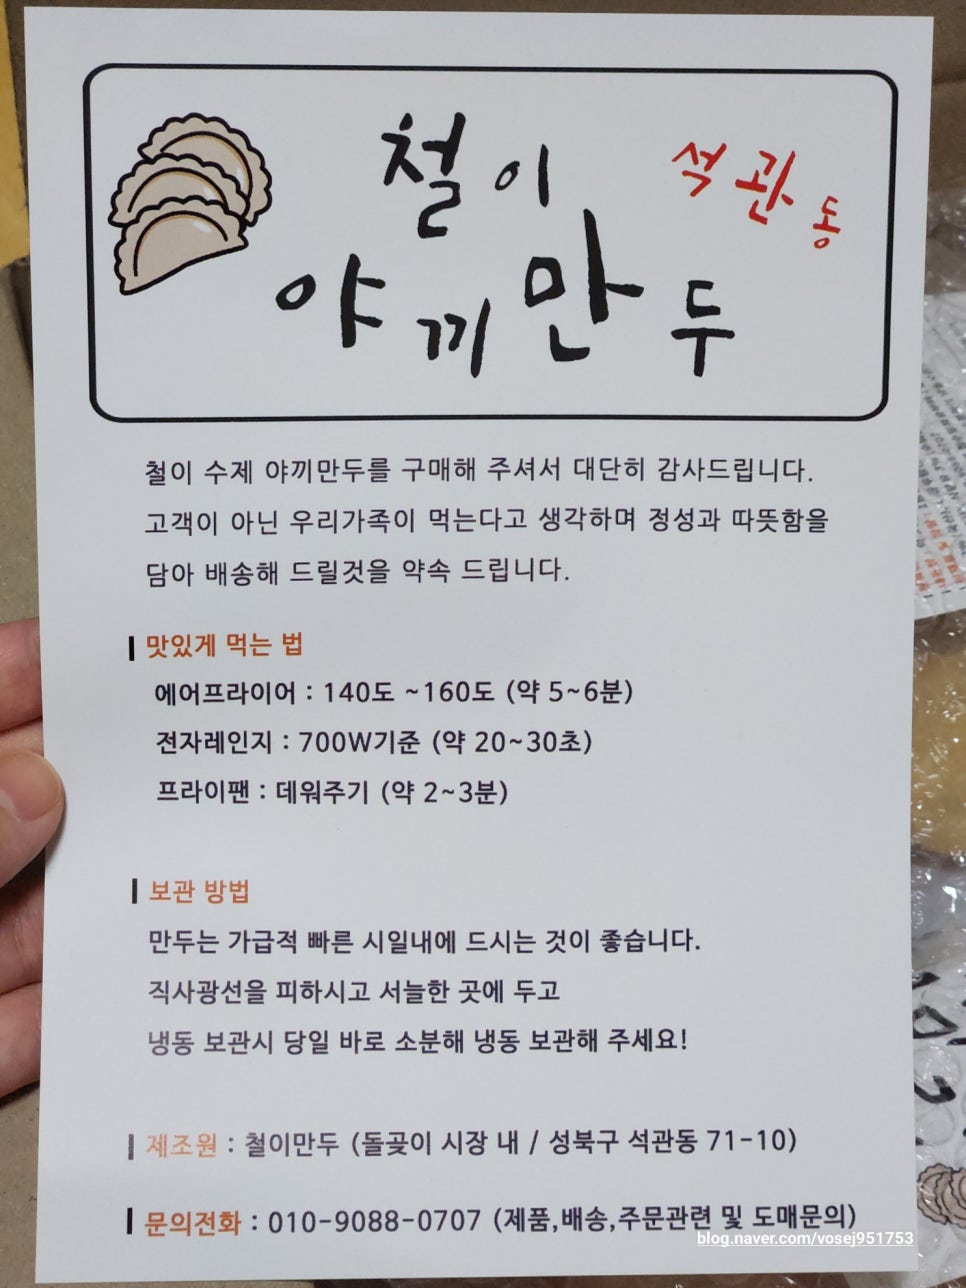 철이
석관동
야끼만두
철이 수제 야끼만두를 구매해 주셔서 대단히 감사드립니다.
고객이 아닌 우리가족이 먹는다고 생각하며 정성과 따뜻함을
담아 배송해 드릴것을 약속 드립니다.
맛있게 먹는 법
에어프라이어 : 140도 ~160도 (약 5~6분)
전자레인지 : 700W기준 (약 20~30초)
프라이팬 : 데워주기 (약 2~3분)
보관 방법
만두는 가급적 빠른 시일내에 드시는 것이 좋습니다.
직사광선을 피하시고 서늘한 곳에 두고
냉동 보관시 당일 바로 소분해 냉동 보관해 주세요!
제조원 : 철이만두 (돌곶이 시장 내 / 성북구 석관동 71-10)
문의전화 : 010-9088-0707 (제품,배송,주문관련 및 도매문의)
blog.naver.com/vosej951753